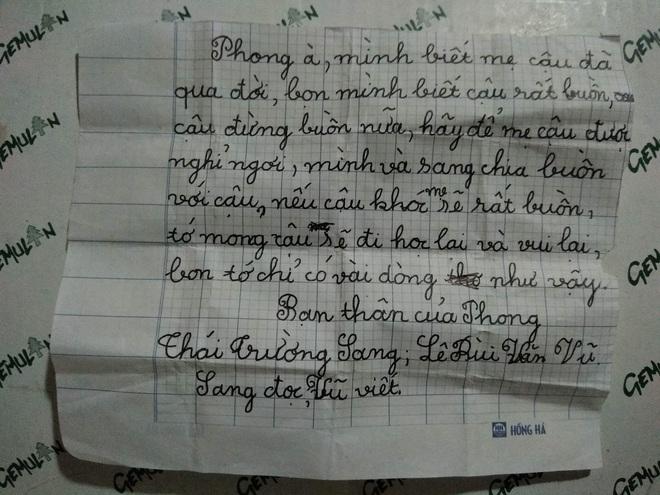 Phong à, mình biết mẹ cậu đã
qua đời, bọn mình biết cậu rất buồn,
cậu đừng buồn nữa, hãy để mẹ cậu được
nghỉ ngơi, mình và sang chia buồn
với cậu, nếu cậu khóc mẹ sẽ rất buồn,
tớ mong cậu sẽ đi học lại và vui lại,
bọn tớ chỉ có vài dòng như vậy.
Bạn thân của Phong
Thái Trường Sang; Lê Bùi Văn Vũ.
Sang đọc, Vũ viết.
HỒNG HÀ
GEMULAN
GEMULAN
GEMULAN
GEMULAN
GEMULAN